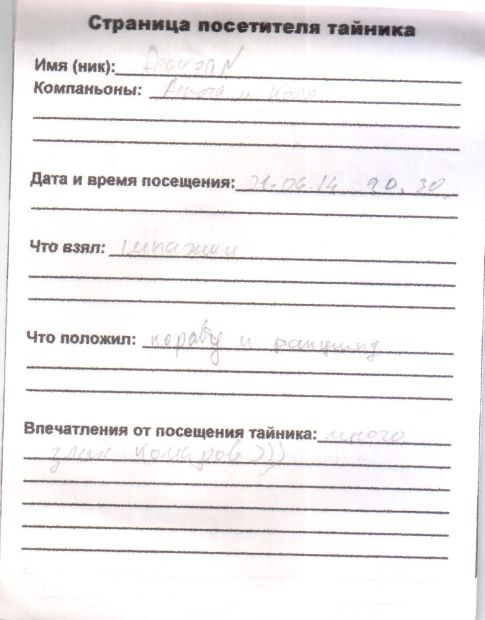 Страница посетителя тайника
Имя (ник):
Компаньоны: и Коля
Дата и время посещения: 21.06.14 20.30
Что взял:
Что положил: и
Впечатления от посещения тайника: много
злых комаров)))